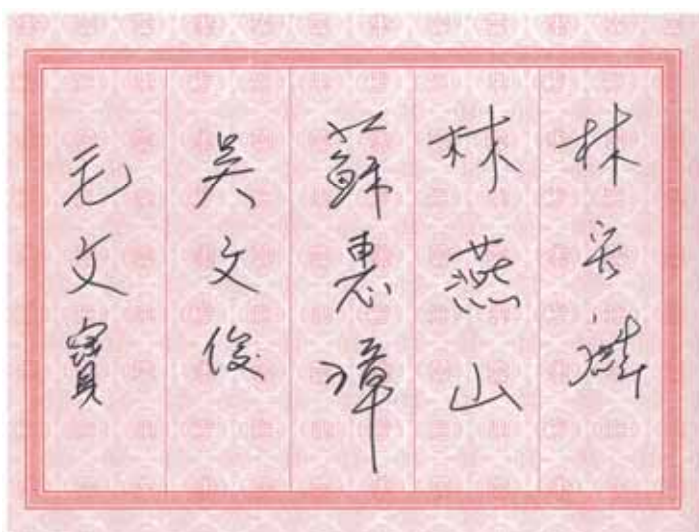 林
林燕山
蘇惠璋
吳文俊
毛文寶